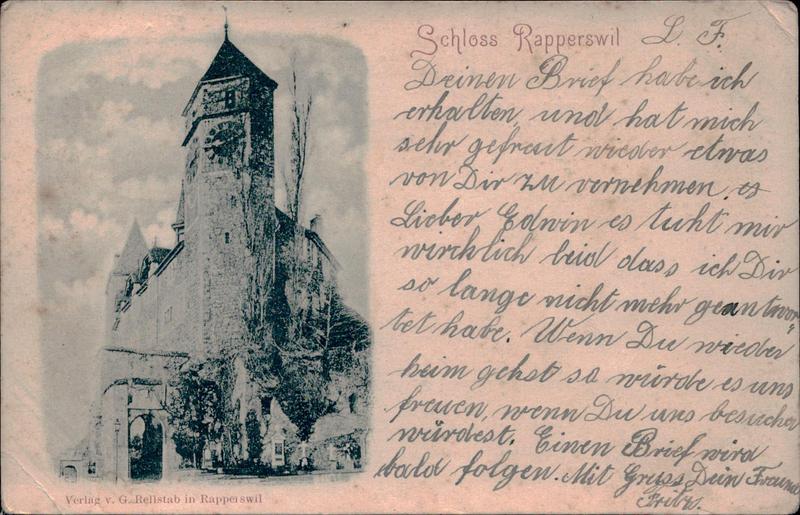 Schloss Rapperswil
L. F.
Deinen Brief habe ich
erhalten, und hat mich
sehr gefreut wieder etwas
von Dir zu vernehmen, es
Lieber Edwin es tuht mir
wirchlich leid dass ich Dir
so lange nicht mehr geantwor"
tet habe. Wenn Du wieder
heim gehst so würde es uns
freuen, wenn Du uns besuchen
würdest. Einen Brief wird
bald folgen. Mit Gruss Dein Freund
Fritz.
Verlag v. G. Rellstab in Rapperswil